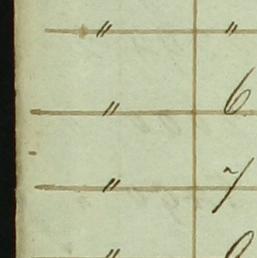 " "
" 6
" 7
"